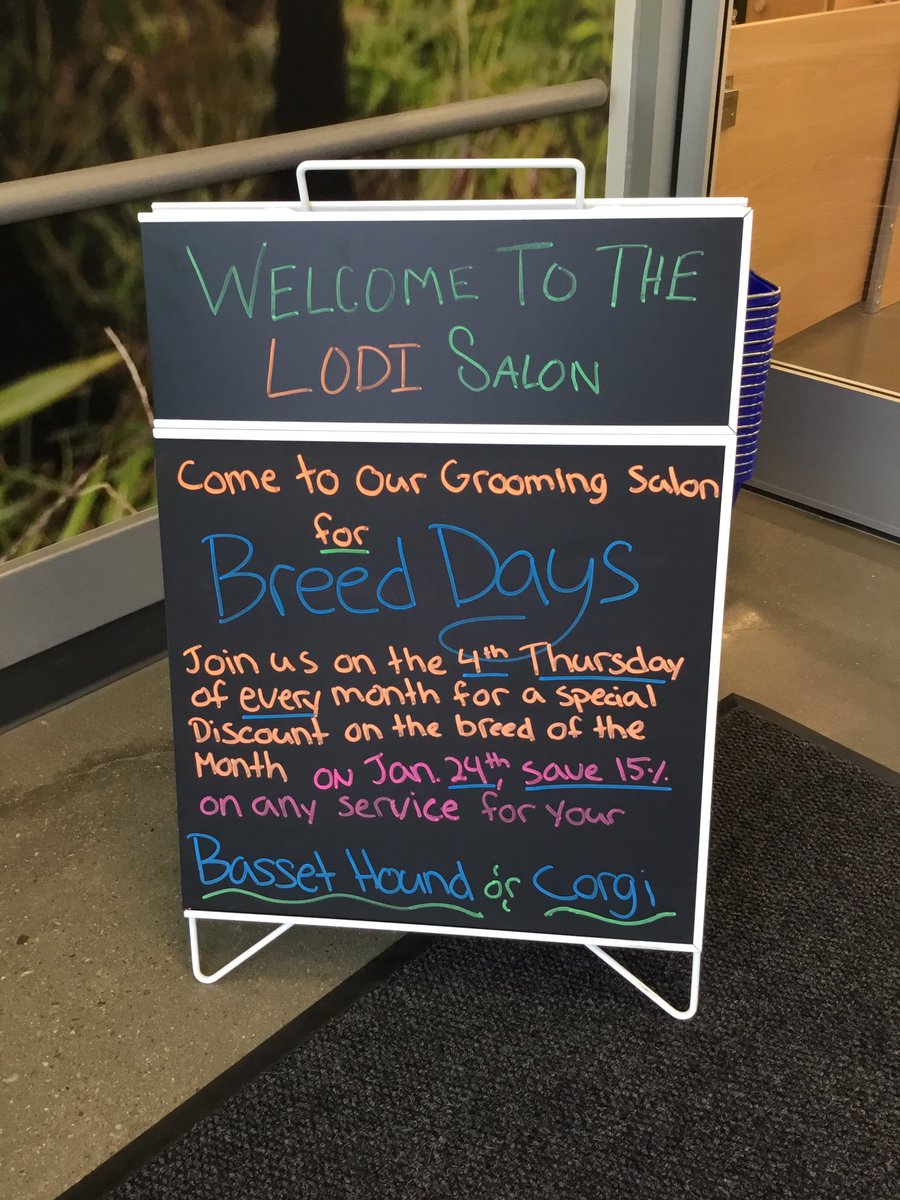 WELCOME TO THE
LODI SALON
Come to Our Grooming Salon
for
Breed Days
Join us on the 4th Thursday
of every month for a special
Discount on the breed of the
Month on Jan. 24th, save 15%
on any service for your
Basset Hound or Corgi